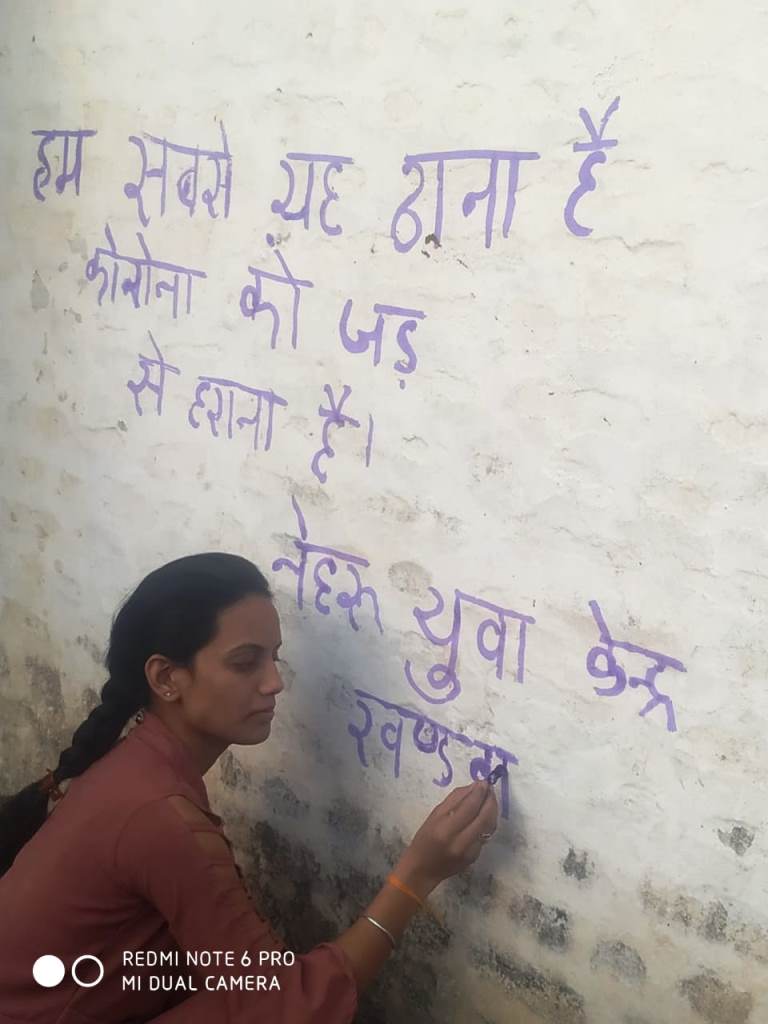 हम सबसे यह ठाना है
कोरोना को जड़
से हराना है।
नेहरू युवा केन्द्र
REDMI NOTE 6 PRO
MI DUAL CAMERA